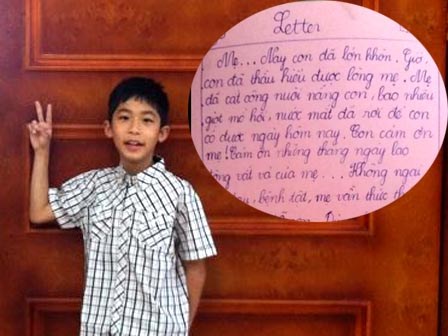 Letter
Mẹ... Nay con đã lớn khôn. Giờ
con đã thấu hiểu được lòng mẹ. Mẹ
đã cất công nuôi nấng con, bao nhiêu
giọt mồ hôi, nước mắt đã rơi để con
có được ngày hôm nay. Con cám ơn
mẹ! Cám ơn những tháng ngày lao
vất vả của mẹ... Không ngại
bệnh tật, mẹ vẫn thức